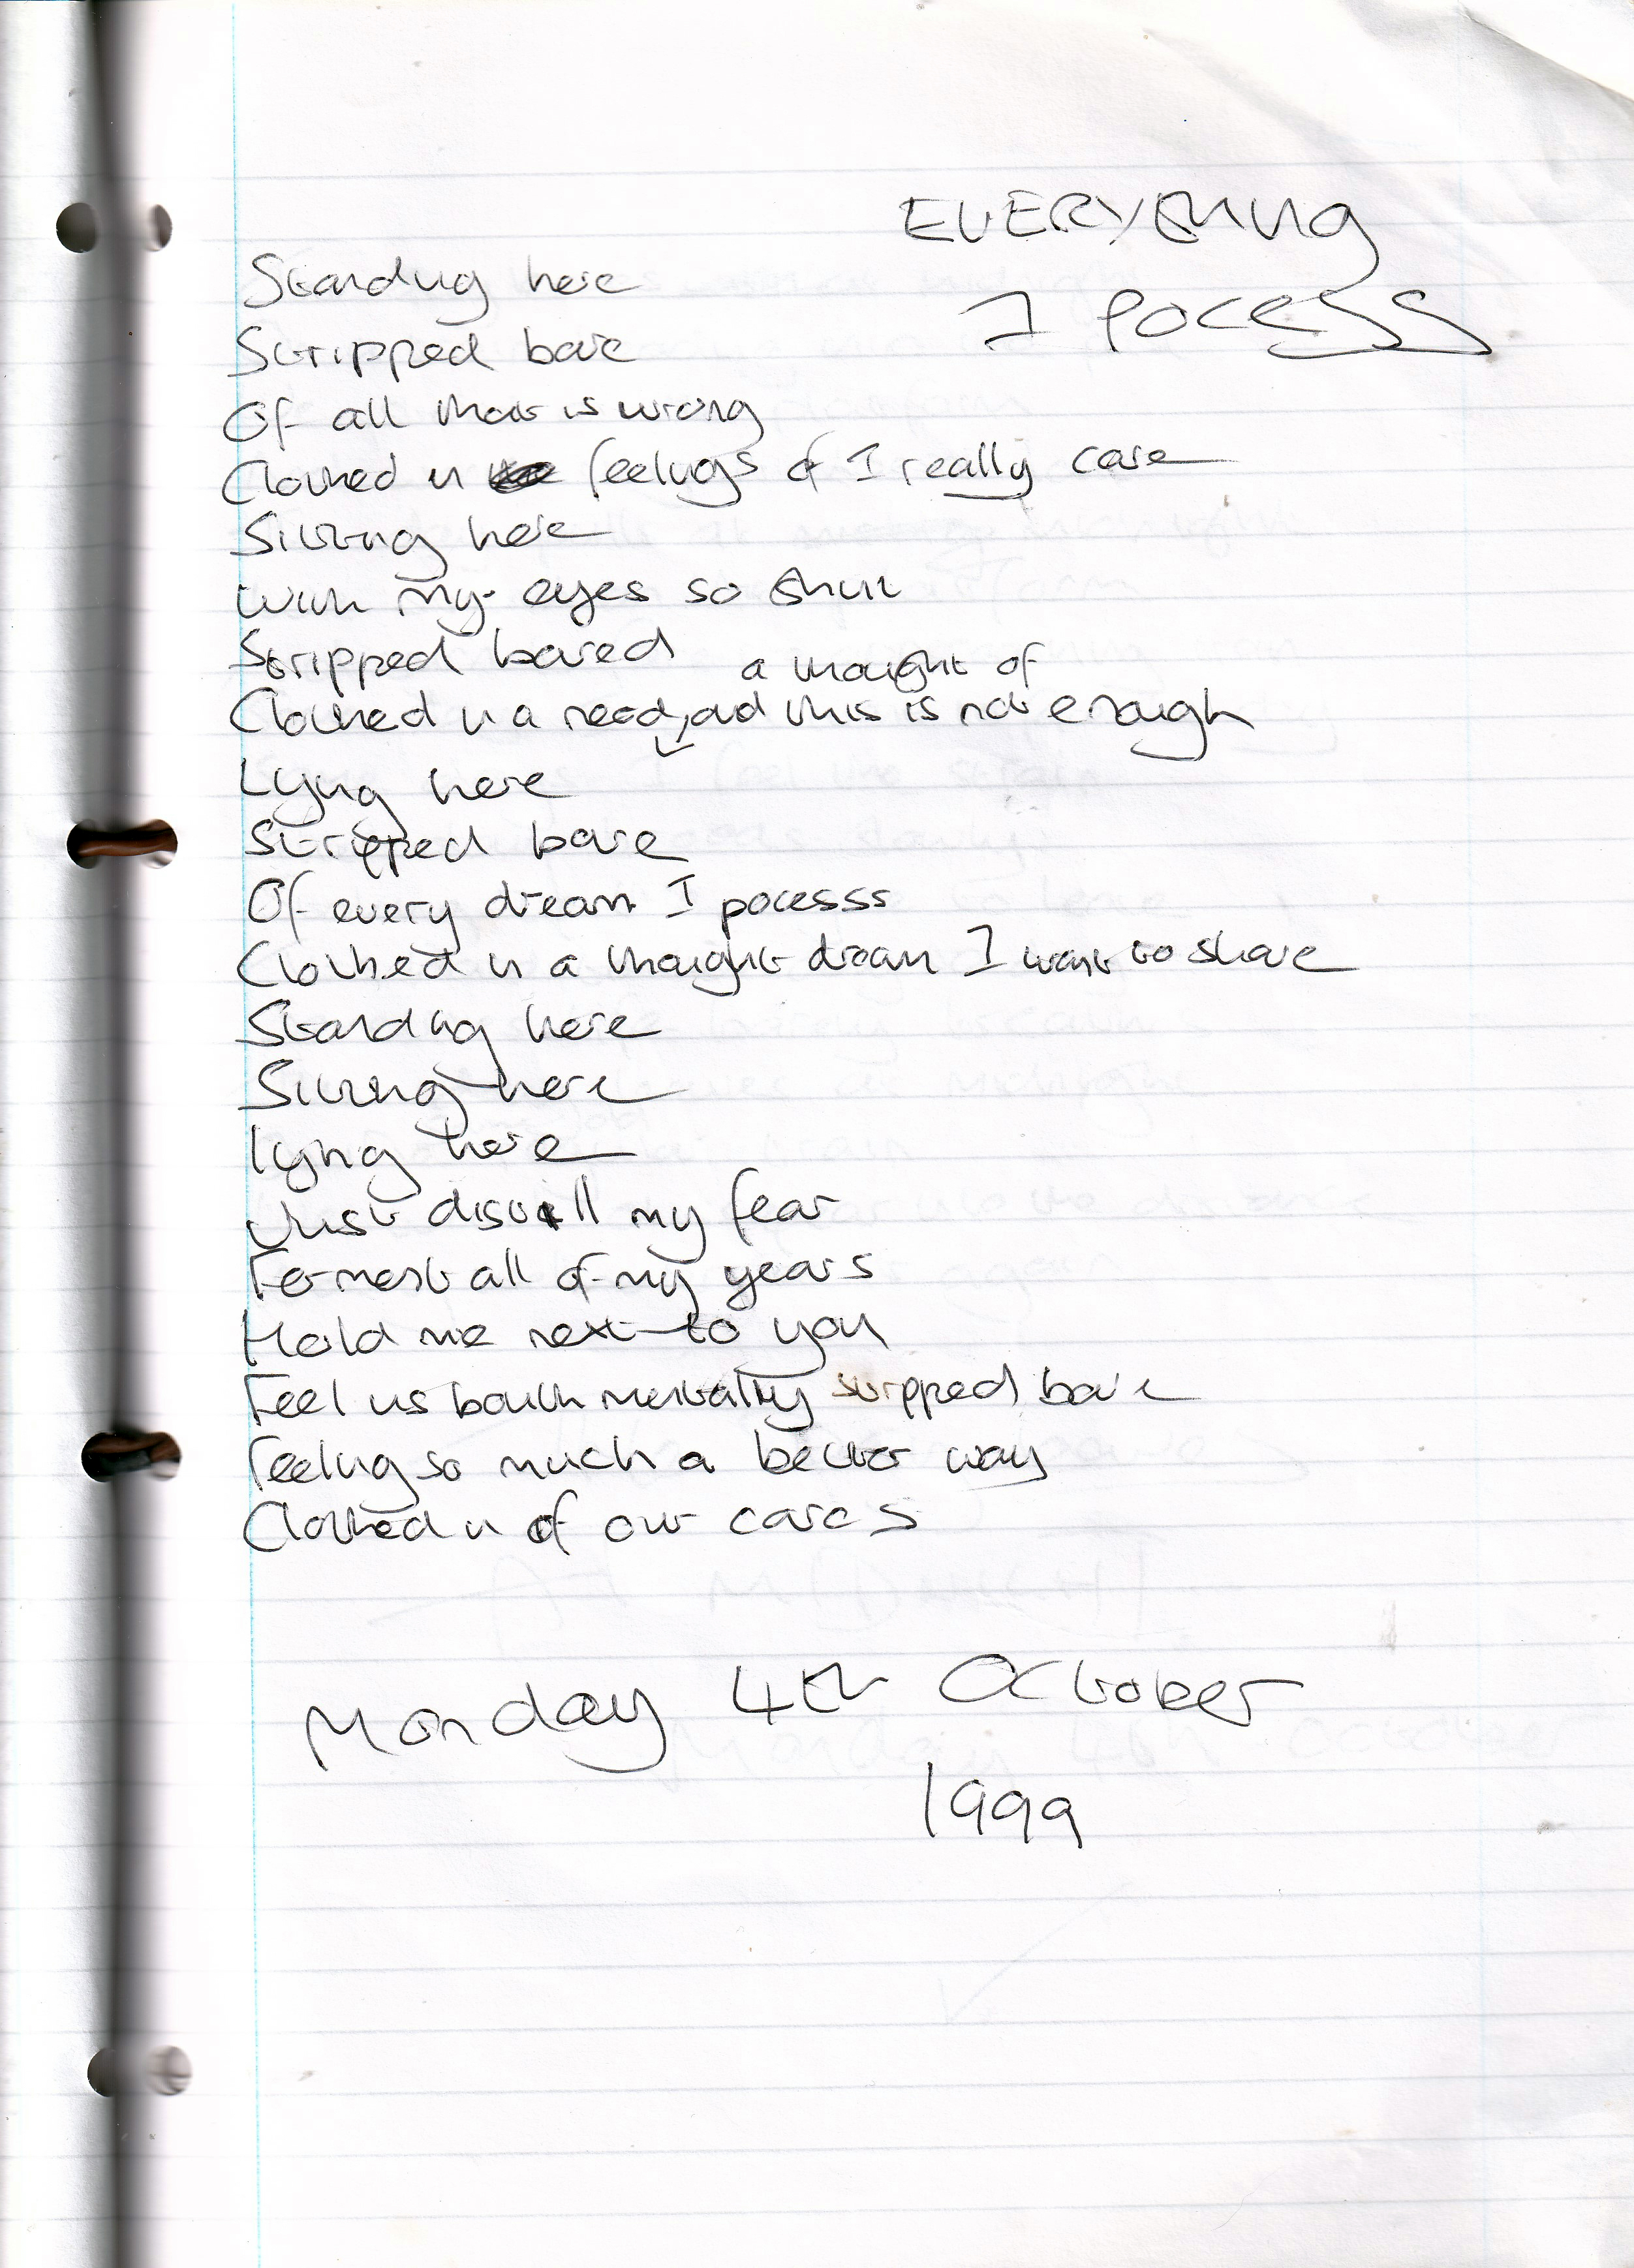 EVERYTHING
I POCESS
Standing here
Stripped bare
Of all that is wrong
Clothed in feelings of I really care
Sitting here
With my eyes so shut
Stripped bared
a thought of
Clothed in a need, and this is not enough
Lying here
Stripped bare
Of every dream I pocesss
Clothed in a thought dream I want to share
Standing here
Sitting here
Lying here
Just distill my fear
Forment all of my years
Hold me next to you
Feel us bouth mentally stripped bare
Feeling so much a better way
Clothed in of our cares
Monday 4th October
1999